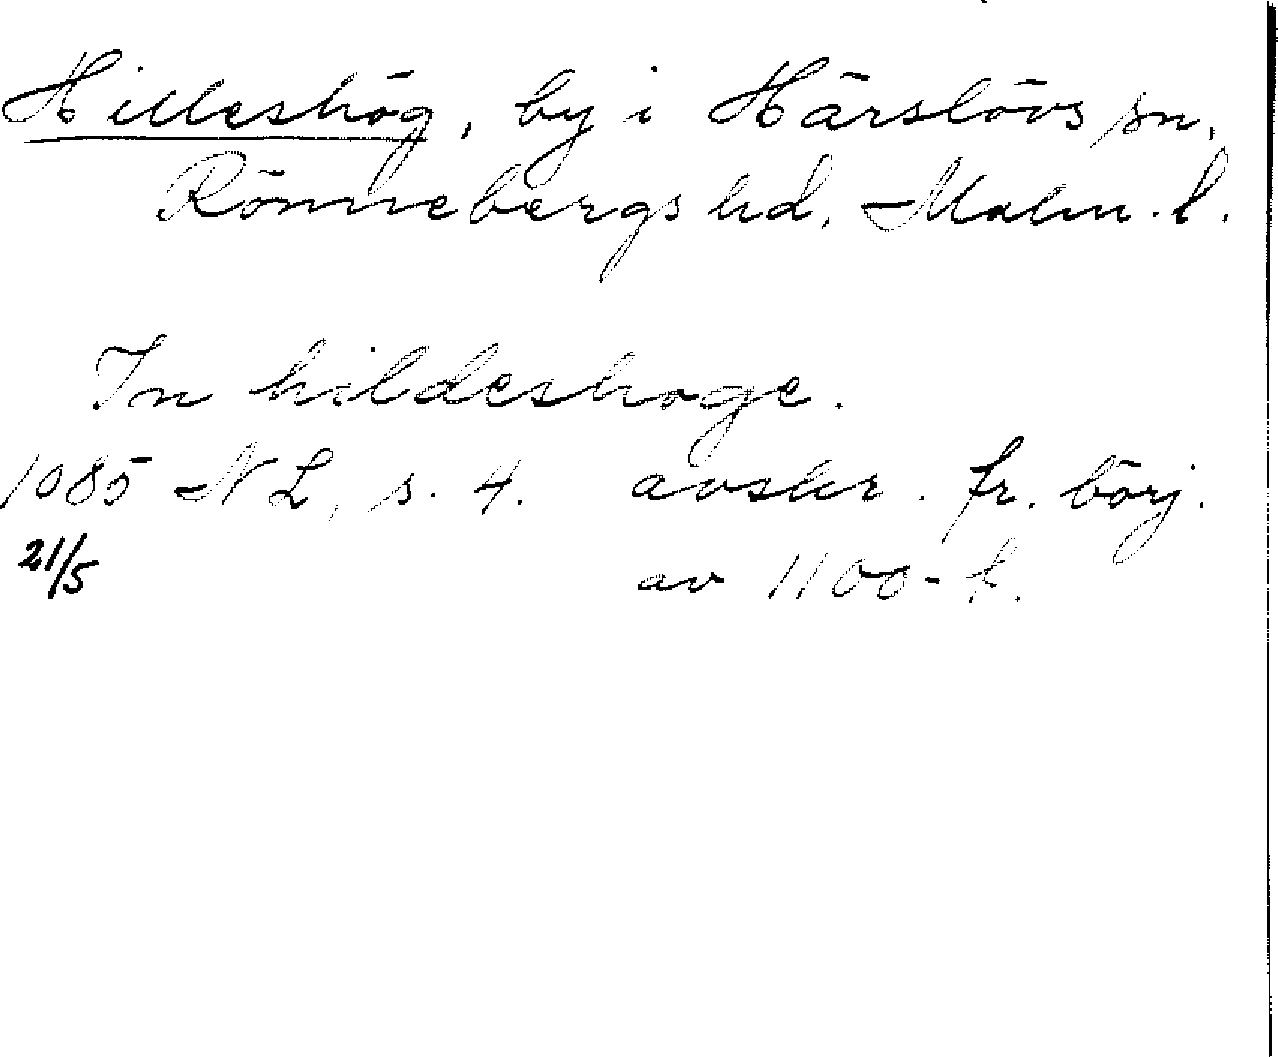 Hilleshög, by i Härslövs sn,
Rönnebergs hd, Malm. l.
In hildeshoge.
1085 NL, s. 4. avskr. fr. börj.
21/5 av 1100-t.